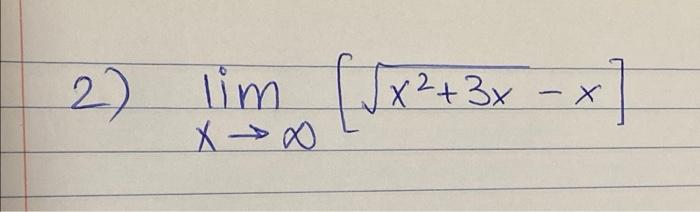 2) lim [√x²+3x - x]
x → ∞